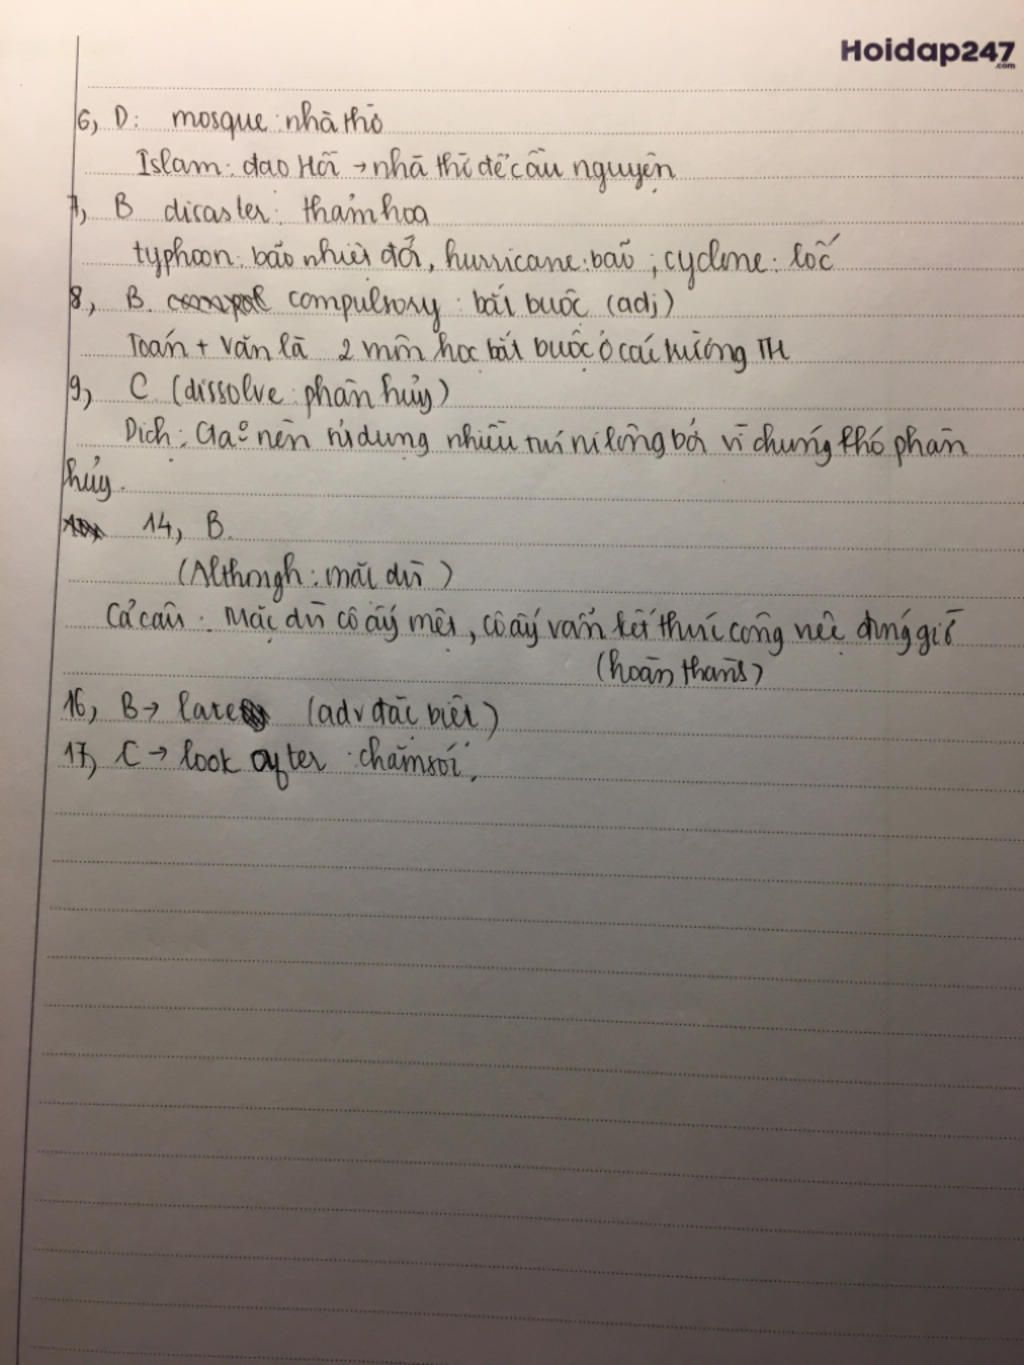 Hoidap247
.com
6, D: mosque: nhà thờ
Islam: đạo Hồi → nhà thờ để cầu nguyện
7, B disaster: thảm hoạ
typhoon: bão nhiệt đới, hurricane: bão; cyclone: lốc
8, B. compulsory: bắt buộc (adj)
Toán + Văn là 2 môn học bắt buộc ở các trường TH
9, C (dissolve: phân hủy)
Dịch: nên sử dụng nhiều túi ni lông bởi vì chúng khó phân
hủy.
14, B.
(Although: mặc dù)
Cả câu: Mặc dù cô ấy mệt, cô ấy vẫn kết thúc công việc đúng giờ
(hoàn thành)
16, B → late (adv đặc biệt)
17, C → look after: chăm sóc.